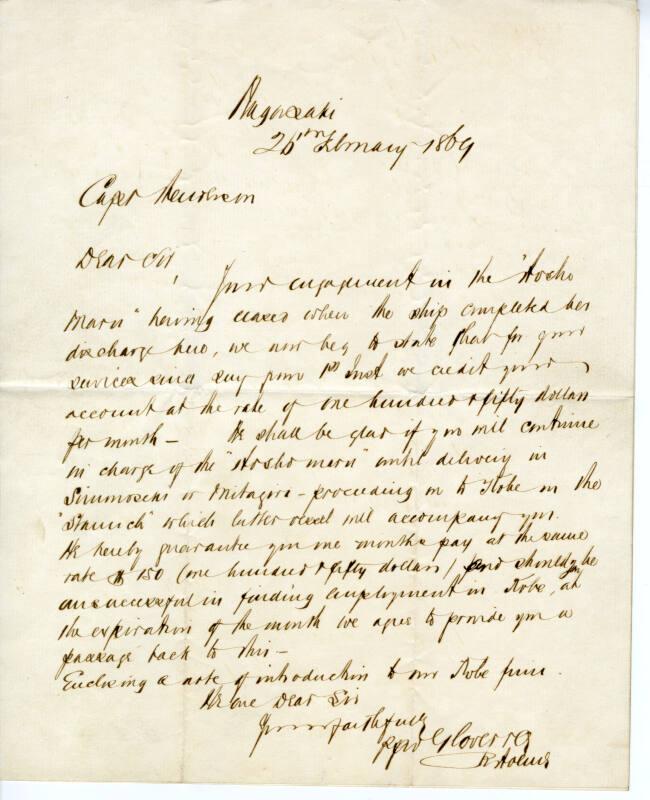 Nagasaki
26th February 1869
Capt Henderson
Dear Sir,
Your engagement in the "Hosho
Maru" having ceased when the ship completed her
discharge here, we now beg to state that for your
services since say from 1st Inst we credit your
account at the rate of one hundred & fifty dollars
per month — We shall be glad if you will continue
in charge of the "Hosho maru" until delivery in
Simmoseki or — proceeding on to Kobe in the
"Staunch" which latter vessel will accompany you.
We hereby guarantee you one months pay at the same
rate $150 (one hundred & fifty dollars) and should you be
unsuccessful in finding employment in Kobe, at
the expiration of the month we agree to provide you a
passage back to this —
Enclosing a note of introduction to our Kobe firm.
We are Dear Sir
Yours faithfully
Glover & Co
R Holme